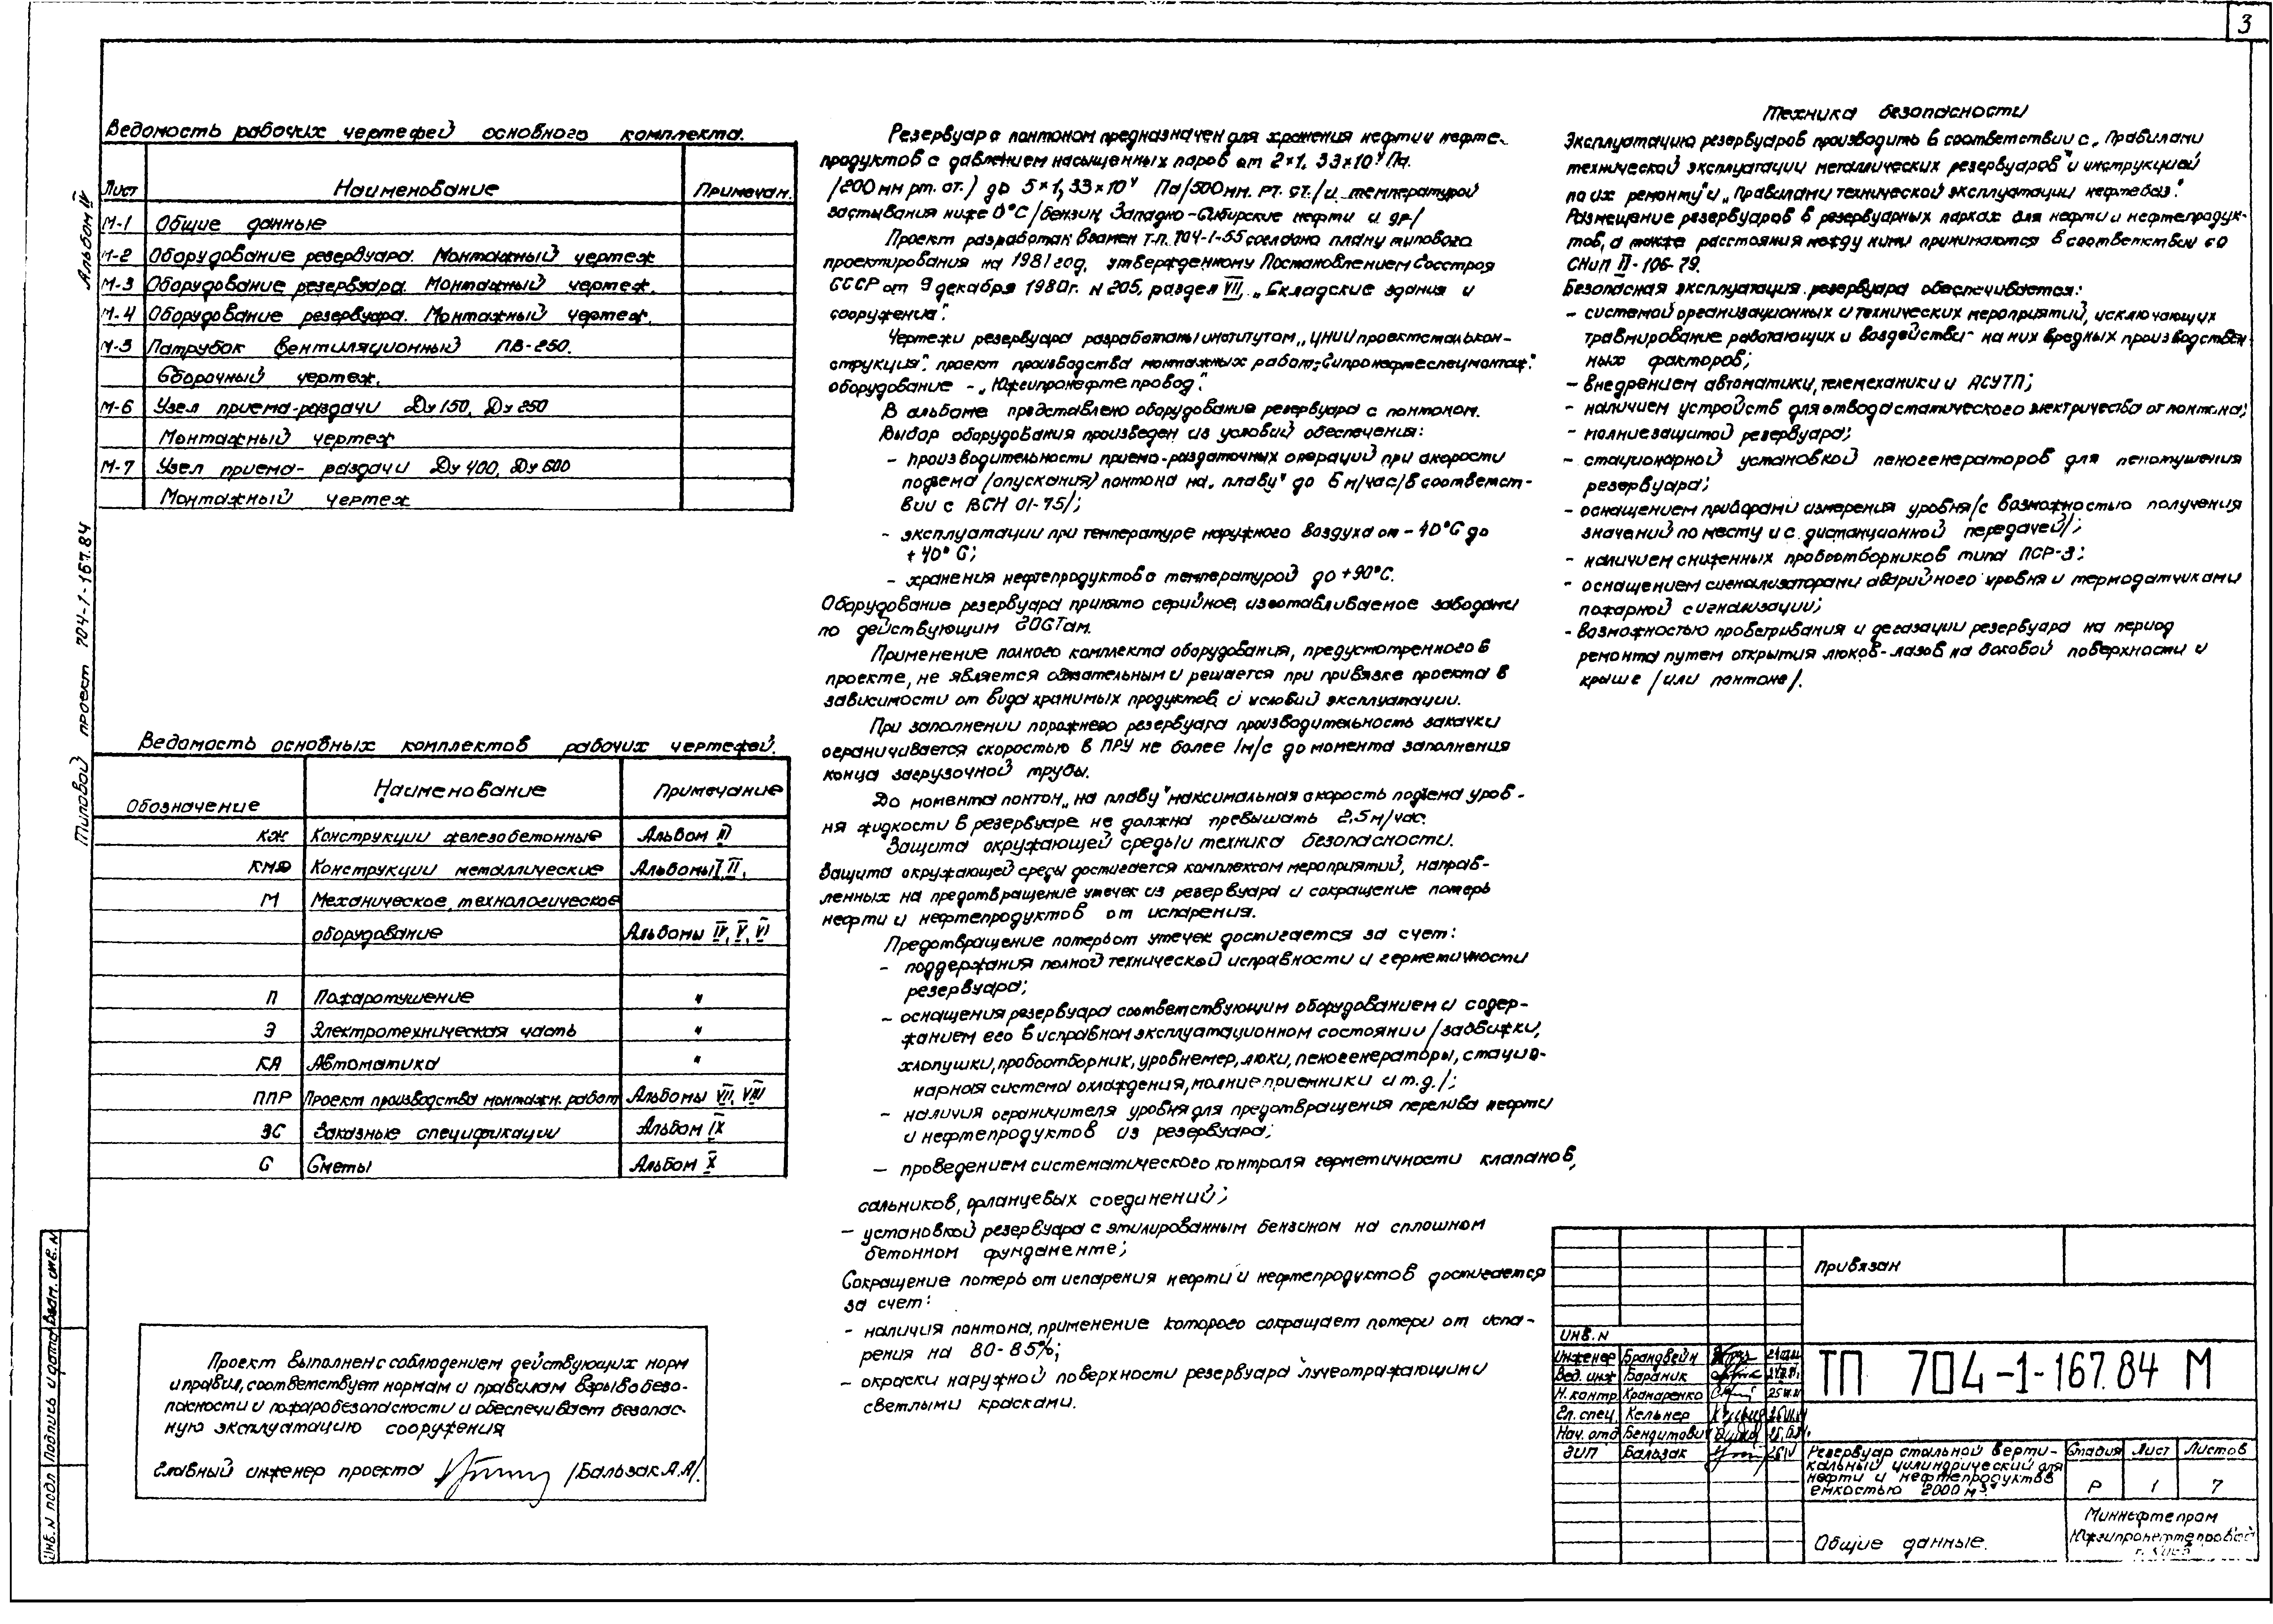 3
Альбом IV
Типовой проект 704-1-167.84
Ведомость рабочих чертежей основного комплекта.
Лист Наименование Примечан.
М-1 Общие данные
М-2 Оборудование резервуара. Монтажный чертеж
М-3 Оборудование резервуара. Монтажный чертеж.
М-4 Оборудование резервуара. Монтажный чертеж.
М-5 Патрубок вентиляционный ПВ-250.
Сборочный чертеж.
М-6 Узел приема-раздачи Ду 150, Ду 250
Монтажный чертеж
М-7 Узел приема-раздачи Ду 400, Ду 600
Монтажный чертеж
Ведомость основных комплектов рабочих чертежей.
Обозначение Наименование Примечание
КЖ Конструкции железобетонные Альбом III
КМД Конструкции металлические Альбомы I, II,
М Механическое, технологическое
оборудование Альбомы IV, V, VI
П Пожаротушение "
Э Электротехническая часть "
КА Автоматика "
ППР Проект производства монтажн. работ Альбомы VII, VIII
ЗС Заказные спецификации Альбом IX
С Сметы Альбом X
Проект выполнен с соблюдением действующих норм
и правил, соответствует нормам и правилам взрывобезо-
пасности и пожаробезопасности и обеспечивает безопас-
ную эксплуатацию сооружения
Главный инженер проекта /Бальзак А.А/.
Резервуар с понтоном предназначен для хранения нефти и нефте-
продуктов с давлением насыщенных паров от 2×1,33×10⁴ Па.
/200 мм рт. ст./ до 5×1,33×10⁴ Па/500мм. рт. ст./ и температурой
застывания ниже 0°С /бензин, Западно-Сибирские нефти и др/
Проект разработан взамен т.п. 704-1-55 согласно плану типового
проектирования на 1981 год, утвержденному Постановлением Госстроя
СССР от 9 декабря 1980г. N 205, раздел VII, „Складские здания и
сооружения".
Чертежи резервуара разработаны институтом „ЦНИИпроектсталькон-
струкция", проект производства монтажных работ-„Гипронефтеспецмонтаж".
оборудование - „Южгипронефтепровод".
В альбоме представлено оборудование резервуара с понтоном.
Выбор оборудования произведен из условий обеспечения:
- производительности приемо-раздаточных операций при скорости
подъема /опускания/ понтона на „плаву" до 6 м/час /в соответст-
вии с ВСН 01-75/;
- эксплуатации при температуре наружного воздуха от -40°С до
+40°С;
- хранения нефтепродуктов с температурой до +90°С.
Оборудование резервуара принято серийное, изготавливаемое заводами
по действующим ГОСТам.
Применение полного комплекта оборудования, предусмотренного в
проекте, не является обязательным и решается при привязке проекта в
зависимости от вида хранимых продуктов и условий эксплуатации.
При заполнении порожнего резервуара производительность закачки
ограничивается скоростью в ПРУ не более 1м/с до момента заполнения
конца загрузочной трубы.
До момента понтон „на плаву" максимальная скорость подъема уров-
ня жидкости в резервуаре не должна превышать 2,5м/час.
Защита окружающей среды и техника безопасности.
Защита окружающей среды достигается комплексом мероприятий, направ-
ленных на предотвращение утечек из резервуара и сокращение потерь
нефти и нефтепродуктов от испарения.
Предотвращение потерь от утечек достигается за счет:
- поддержания полной технической исправности и герметичности
резервуара;
- оснащения резервуара соответствующим оборудованием и содер-
жанием его в исправном эксплуатационном состоянии /задвижки,
хлопушки, пробоотборник, уровнемер, люки, пеногенераторы, стацио-
нарная система охлаждения, молниеприемники и т.д./;
- наличия ограничителя уровня для предотвращения перелива нефти
и нефтепродуктов из резервуара;
- проведением систематического контроля герметичности клапанов,
сальников, фланцевых соединений;
- установкой резервуара с этилированным бензином на сплошном
бетонном фундаменте;
Сокращение потерь от испарения нефти и нефтепродуктов достигается
за счет:
- наличия понтона, применение которого сокращает потери от испа-
рения на 80-85%;
- окраски наружной поверхности резервуара лучеотражающими
светлыми красками.
Техника безопасности
Эксплуатацию резервуаров производить в соответствии с „Правилами
технической эксплуатации металлических резервуаров" и инструкцией
по их ремонту" и „Правилами технической эксплуатации нефтебаз".
Размещение резервуаров в резервуарных парках для нефти и нефтепродук-
тов, а также расстояния между ними принимаются в соответствии со
СНиП II-106-79.
Безопасная эксплуатация резервуара обеспечивается:
- системой организационных и технических мероприятий, исключающих
травмирование работающих и воздействие на них вредных производствен-
ных факторов;
- внедрением автоматики, телемеханики и АСУТП;
- наличием устройств для отвода статического электричества от понтона;
- молниезащитой резервуара;
- стационарной установкой пеногенераторов для пенотушения
резервуара;
- оснащением приборами измерения уровня /с возможностью получения
значений по месту и с дистанционной передачей/;
- наличием сниженных пробоотборников типа ПСР-3;
- оснащением сигнализаторами аварийного уровня и термодатчиками
пожарной сигнализации;
- возможностью проветривания и дегазации резервуара на период
ремонта путем открытия люков-лазов на боковой поверхности и
крыше /или понтоне/.
Привязан
Инв. N
Инженер Брандвейн
Вед. инж Бараник
Н. контр Кранаренко
Гл. спец Кельнер
Нач. отд Бендитович
ГИП Бальзак
ТП 704-1-167.84 М
Резервуар стальной верти-
кальный цилиндрический для
нефти и нефтепродуктов
емкостью 2000 м³.
Стадия Лист Листов
Р 1 7
Общие данные.
Миннефтепром
Южгипронефтепровод
г. Киев
Инв. N подл Подпись и дата Взам. инв. N